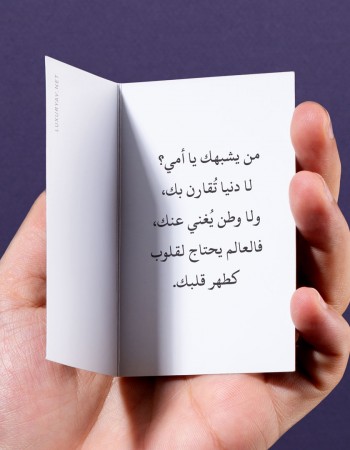 من يشبهك يا أمي؟
لا دنيا تُقارن بك،
ولا وطن يُغني عنك،
فالعالم يحتاج لقلوب
كطهر قلبك.
LUXURYAY.NET